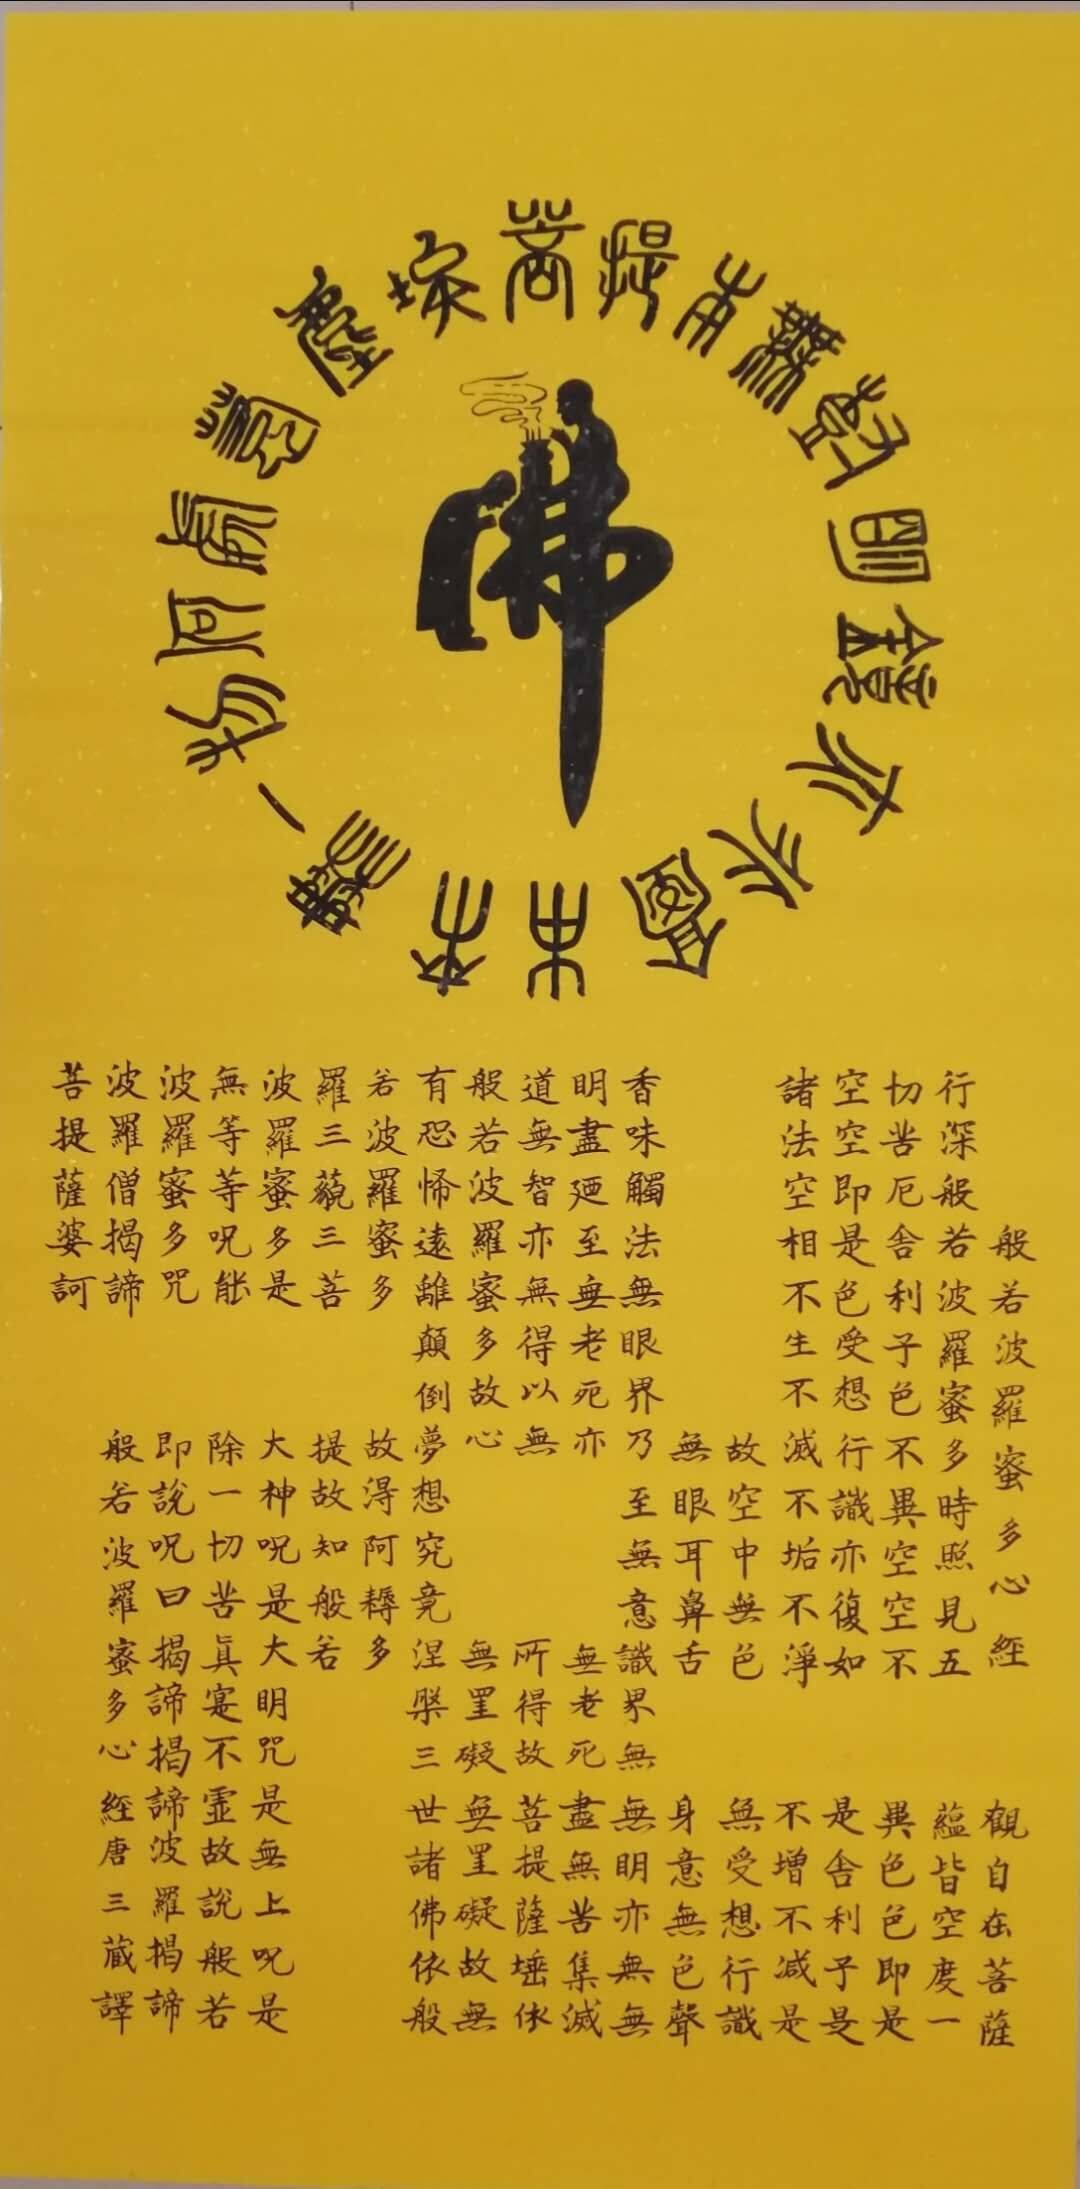 菩提本無樹明鏡亦非臺本來無一物何處惹塵埃
佛
般若波羅蜜多心經
觀自在菩薩
行深般若波羅蜜多時照見五蘊皆空度一
切苦厄舍利子色不異空空不異色色即是
空空即是色受想行識亦復如是舍利子是
諸法空相不生不滅不垢不淨不增不減是
故空中無色無受想行識
無眼耳鼻舌身意無色聲
香味觸法無眼界乃至無意識界無無明亦無無
明盡廼至無老死亦無老死盡無苦集滅
道無智亦無得以無所得故菩提薩埵依
般若波羅蜜多故心無罣礙無罣礙故無
有恐怖遠離顛倒夢想究竟涅槃三世諸佛依般
若波羅蜜多故得阿耨多
羅三藐三菩提故知般若
波羅蜜多是大神呪是大明咒是無上呪是
無等等呪能除一切苦真寔不虛故說般若
波羅蜜多咒即說呪曰揭諦揭諦波羅揭諦
波羅僧揭諦
菩提薩婆訶
般若波羅蜜多心經唐三藏譯